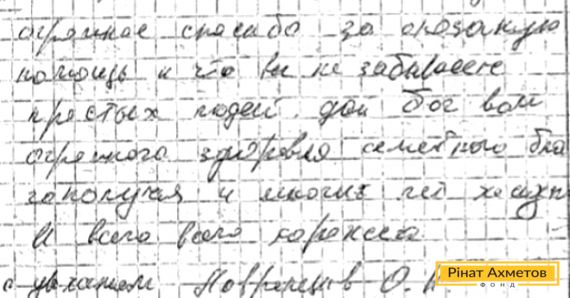 огромное спасибо за оказаную
помощь и что вы не забываете
простых людей. дай бог вам
огромного здоровья семейного бла
гополучия и многих лет жизни
И всего всего хорошего
с уважением О.
Рінат Ахметов
ФОНД